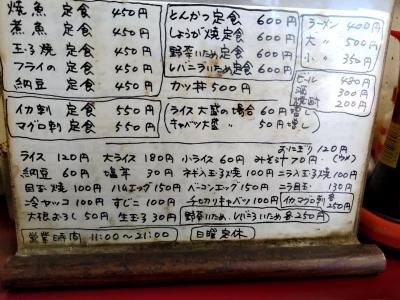 焼魚 定食 450円
煮魚 定食 450円
玉子焼 定食 450円
フライの 定食 450円
納豆 定食 450円
イカ刺 定食 550円
マグロ刺 定食 550円
とんかつ定食 600円
しょうが焼定食 600円
野菜いため定食 600円
レバニラいため定食 600円
カツ丼 500円
ラーメン 400円
大 〃 500円
小 〃 350円
ビール 480円
酒 300円
焼酎 200円
ライス大盛の場合 60円増し
キャベツ大盛 〃 50円増し
おにぎり 120円
(ウメ)
ライス 120円 大ライス 180円 小ライス 60円 みそ汁 70円
納豆 60円 塩辛 30円 ネギ入玉子焼 100円 ニラ入玉子焼 100円
目玉焼 100円 ハムエッグ 150円 ベーコンエッグ 150円 ニラ目玉 130円
冷ヤッコ 100円 すじこ 100円 千切りキャベツ 100円 イカ、マグロ刺各250円
大根おろし 50円 生玉子 30円 野菜いため、レバニラいため各250円
営業時間 11:00〜21:00 日曜定休